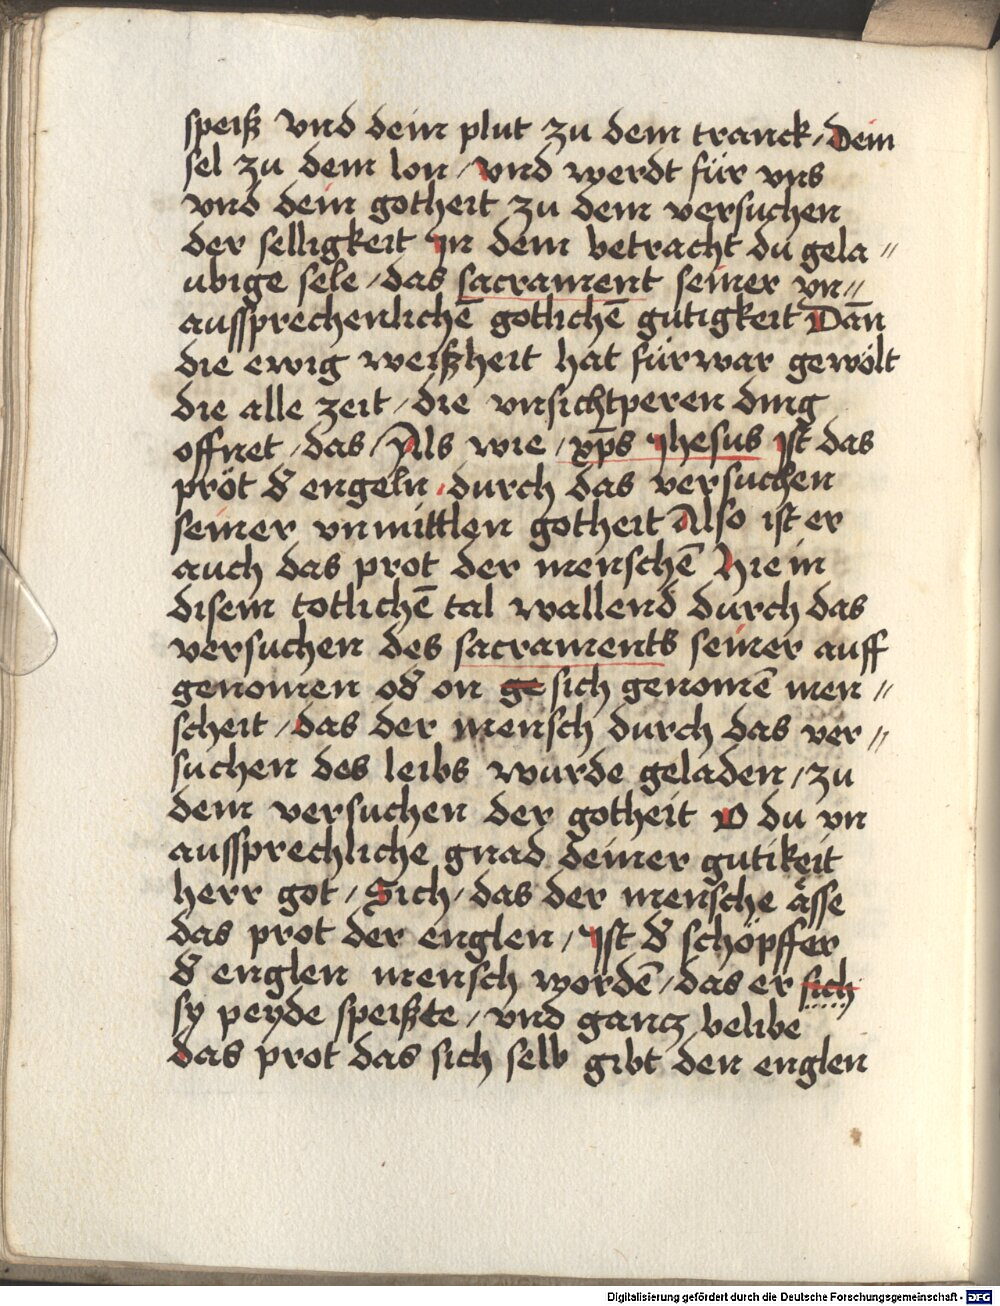 speiß vnd dein plut zu dem tranck / Dein
sel zu dem lon / vnd werdt für vns
vnd dein gotheit zu dem versuchen
der selligkeit Jn dem betracht du gela〃
ubige sele / das sacrament seiner vn〃
aussprechenlichē gotlichē gutigkeit Dan̄
die ewig weißheit hat fürwar gewölt
die alle zeit / die vnsichtperen ding
offnet / das / Als wie / xp̄s Jhesus Jst das
pröt d̄ engeln / durch das versuchen
seiner vnmittlen gotheit Also ist er
auch das prot der menschē Hie in
disem totlichē tal wallend durch das
versuchen des sacraments seiner auff
genomen od̄ on ge sich genomē men〃
scheit / das der mensch durch das ver〃
suchen des leibs wurde geladen / zu
dem versuchen der gotheit O du vn
aussprechliche gnad deiner gutikeit
herr got / Sich / das der mensche ässe
das prot der englen / Jst d̄ schöpffer
d̄ englen mensch wordē / das er sich
sy peyde speißte / vnd gancz belibe
das prot das sich selb gibt den englen
Digitalisierung gefördert durch die Deutsche Forschungsgemeinschaft - DFG